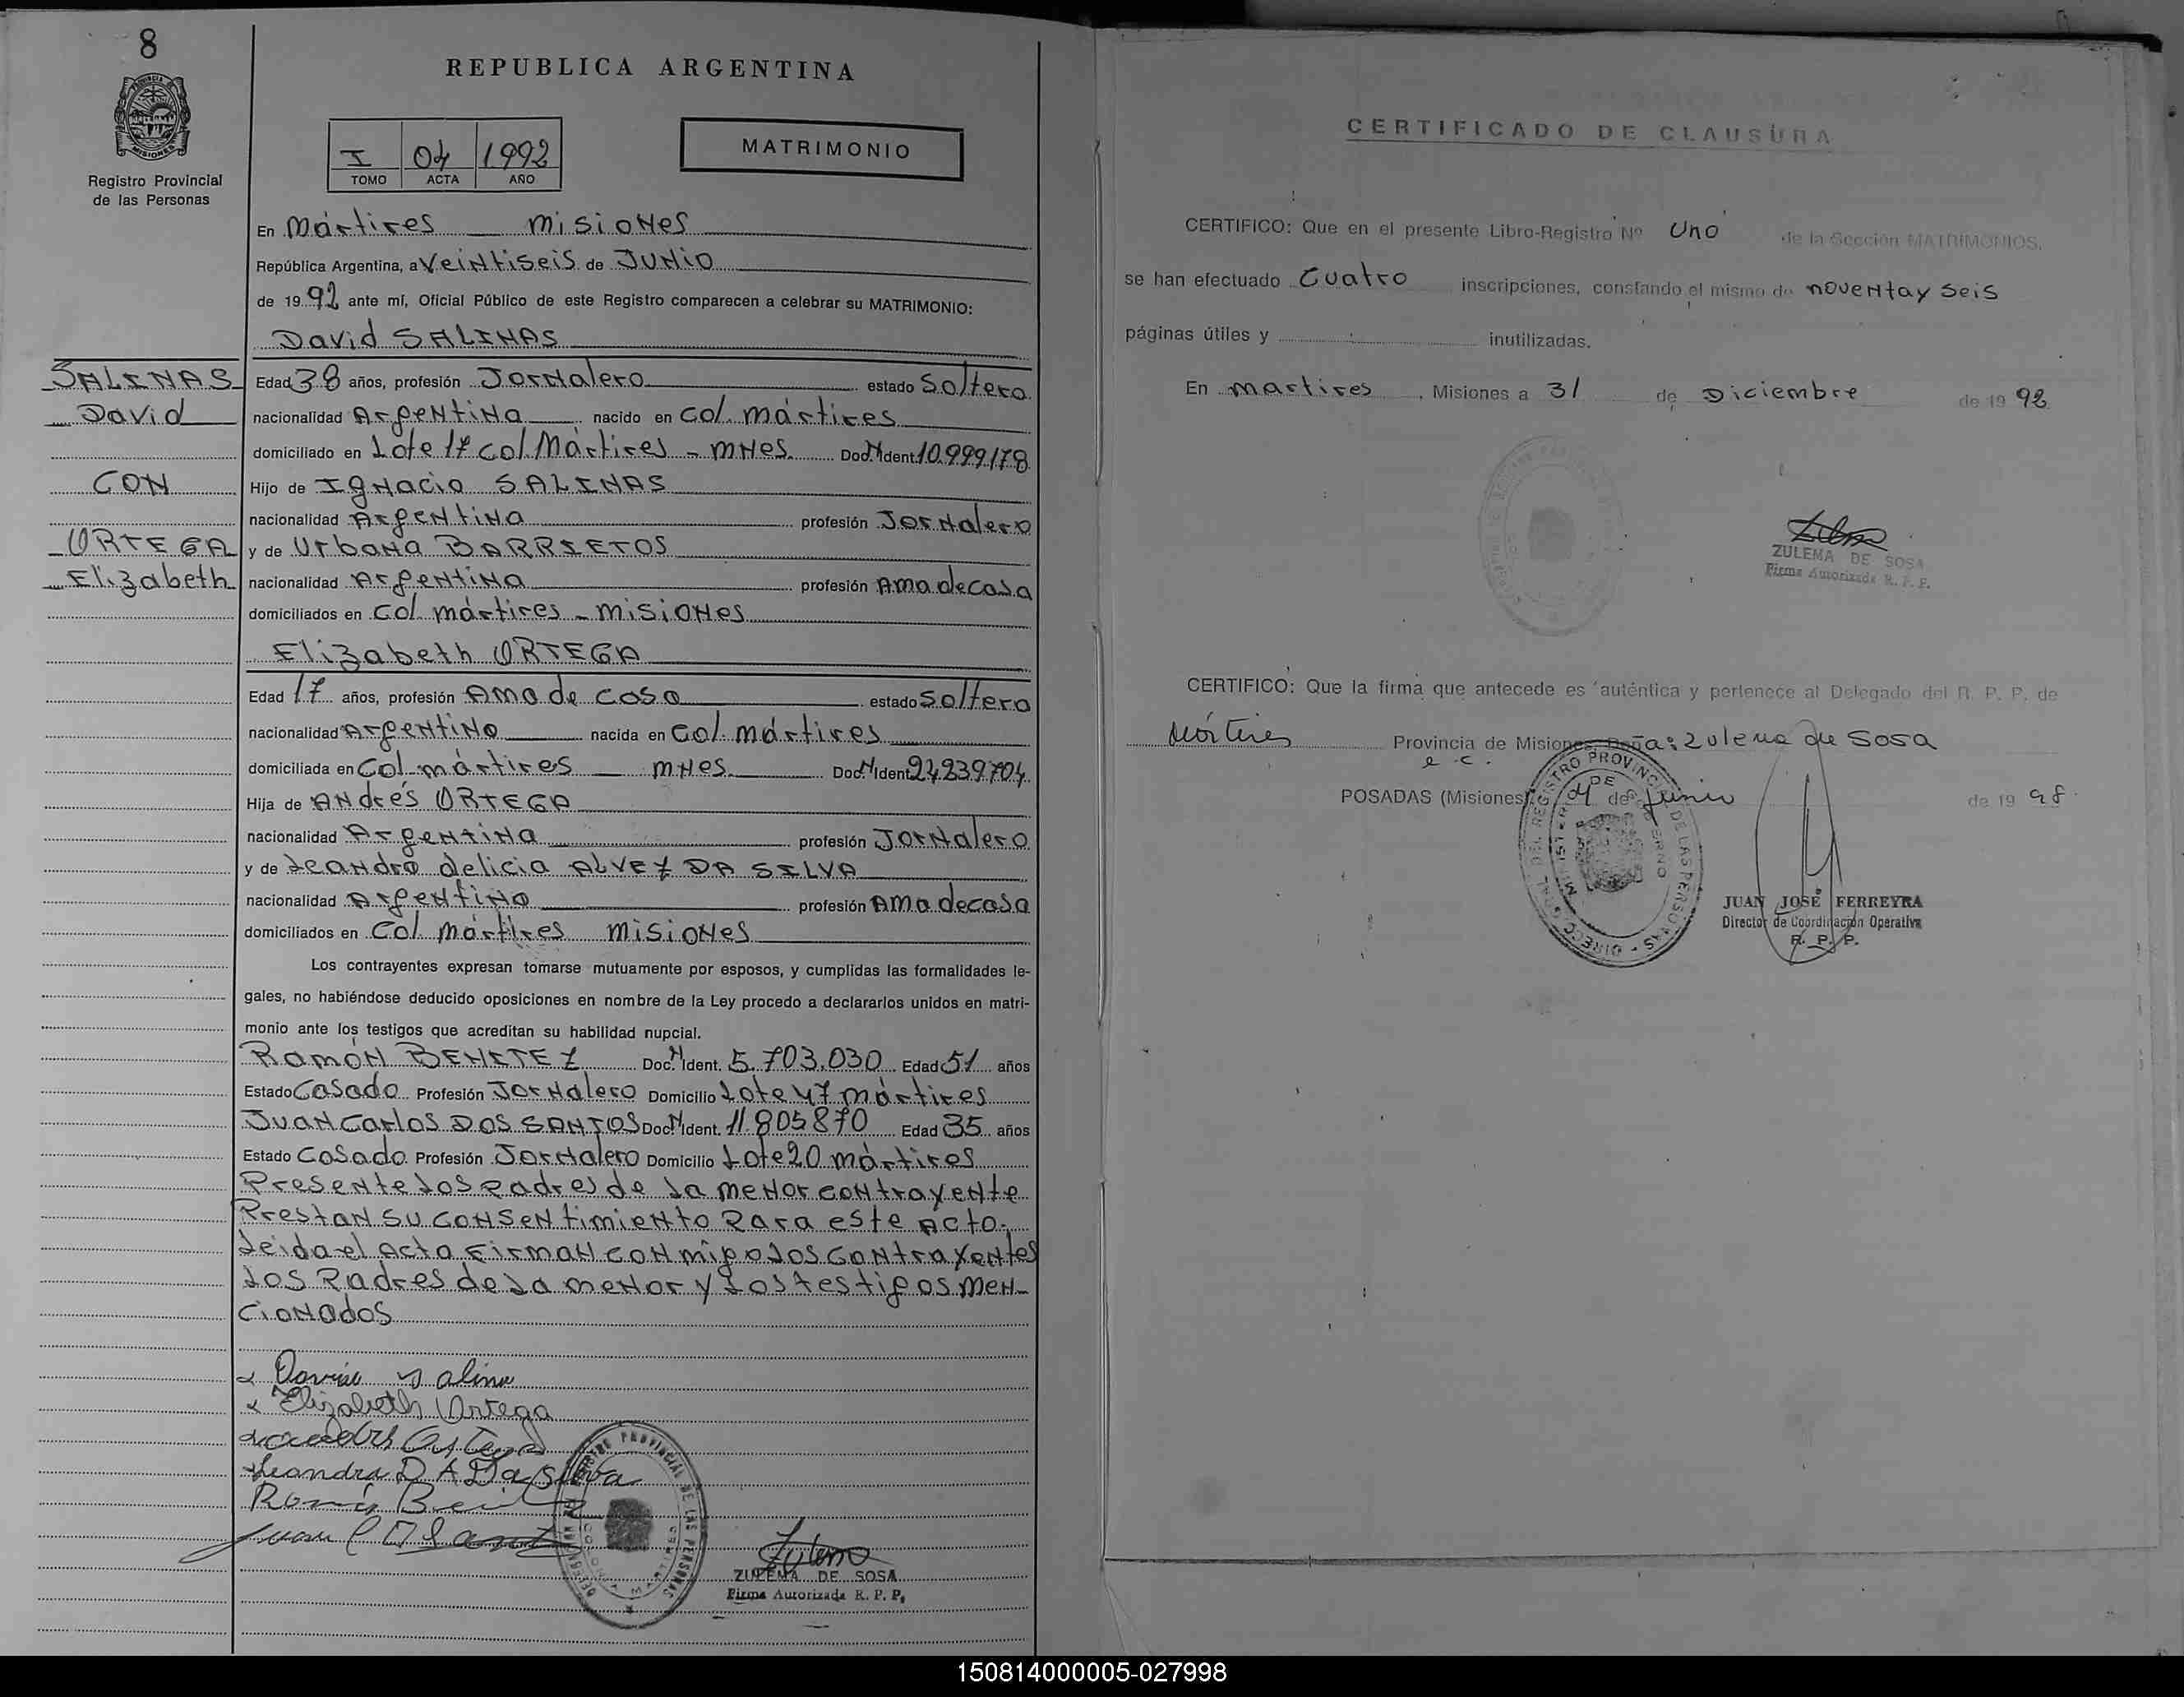 8
REPUBLICA ARGENTINA
MISIONES
Registro Provincial
de las Personas
I 04 1992
TOMO ACTA AÑO
MATRIMONIO
En Mártires misiones
República Argentina, a Veintiseis de Junio
de 1992 ante mí, Oficial Público de este Registro comparecen a celebrar su MATRIMONIO:
David SALINAS
SALINAS
David
CON
ORTEGA
Elizabeth
Edad 38 años, profesión Jornalero estado Soltero
nacionalidad Argentina nacido en Col. mártires
domiciliado en Lote 17 col. Mártires - Mnes. Doc. N Ident. 10.999.178
Hijo de Ignacio SALINAS
nacionalidad Argentina profesión Jornalero
y de Urbana BARRIETOS
nacionalidad Argentina profesión Ama de casa
domiciliados en Col. mártires - misiones
Elizabeth ORTEGA
Edad 17 años, profesión Ama de casa estado Soltera
nacionalidad Argentina nacida en Col. mártires
domiciliada en Col. mártires mnes. Doc. N Ident. 24.239.704
Hija de Andrés ORTEGA
nacionalidad Argentina profesión Jornalero
y de Leandra delicia ALVEZ DA SILVA
nacionalidad Argentina profesión Ama de casa
domiciliados en Col. mártires misiones
Los contrayentes expresan tomarse mutuamente por esposos, y cumplidas las formalidades le-
gales, no habiéndose deducido oposiciones en nombre de la Ley procedo a declararlos unidos en matri-
monio ante los testigos que acreditan su habilidad nupcial.
Ramón BENITEZ Doc. N Ident. 5.703.030 Edad 51 años
Estado Casado Profesión Jornalero Domicilio Lote 47 mártires
Juan Carlos DOS SANTOS Doc. N Ident. 11.805870 Edad 35 años
Estado Casado Profesión Jornalero Domicilio Lote 20 mártires
Presente los padres de la menor contrayente
Prestan su consentimiento para este Acto.
Leida el Acta Firman conmigo los Contrayentes
los Padres de la menor y los testigos men-
cionados
Elizabeth Ortega
Leandra D A Da Silva
ZULEMA DE SOSA
Firma Autorizada R. P. P.
CERTIFICADO DE CLAUSURA
CERTIFICO: Que en el presente Libro-Registro Nº Uno de la Sección MATRIMONIOS,
se han efectuado Cuatro inscripciones, constando el mismo de noventa y seis
páginas útiles y inutilizadas.
En martires, Misiones a 31 de Diciembre de 1992
ZULEMA DE SOSA
Firma Autorizada R. P. P.
CERTIFICO: Que la firma que antecede es auténtica y pertenece al Delegado del R. P. P. de
Mártires Provincia de Misiones, Doña: Zulema de Sosa
POSADAS (Misiones) 04 de Junio de 1998.
JUAN JOSÉ FERREYRA
Director de Coordinación Operativa
R. P. P.
150814000005-027998